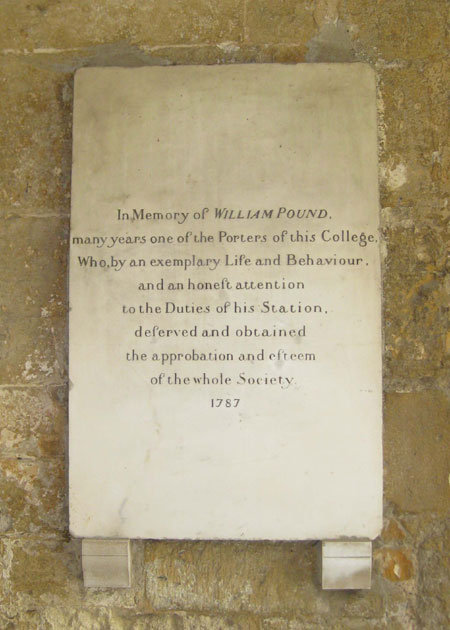 In Memory of WILLIAM POUND.
many years one of the Porters of this College.
Who, by an exemplary Life and Behaviour,
and an honeſt attention
to the Duties of his Station,
deſerved and obtained
the approbation and eſteem
of the whole Society.
1787